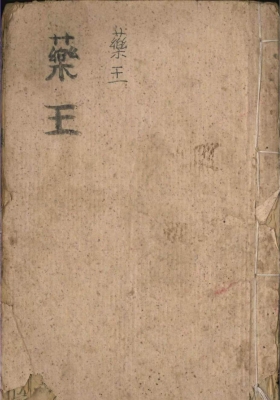 藥王
藥王